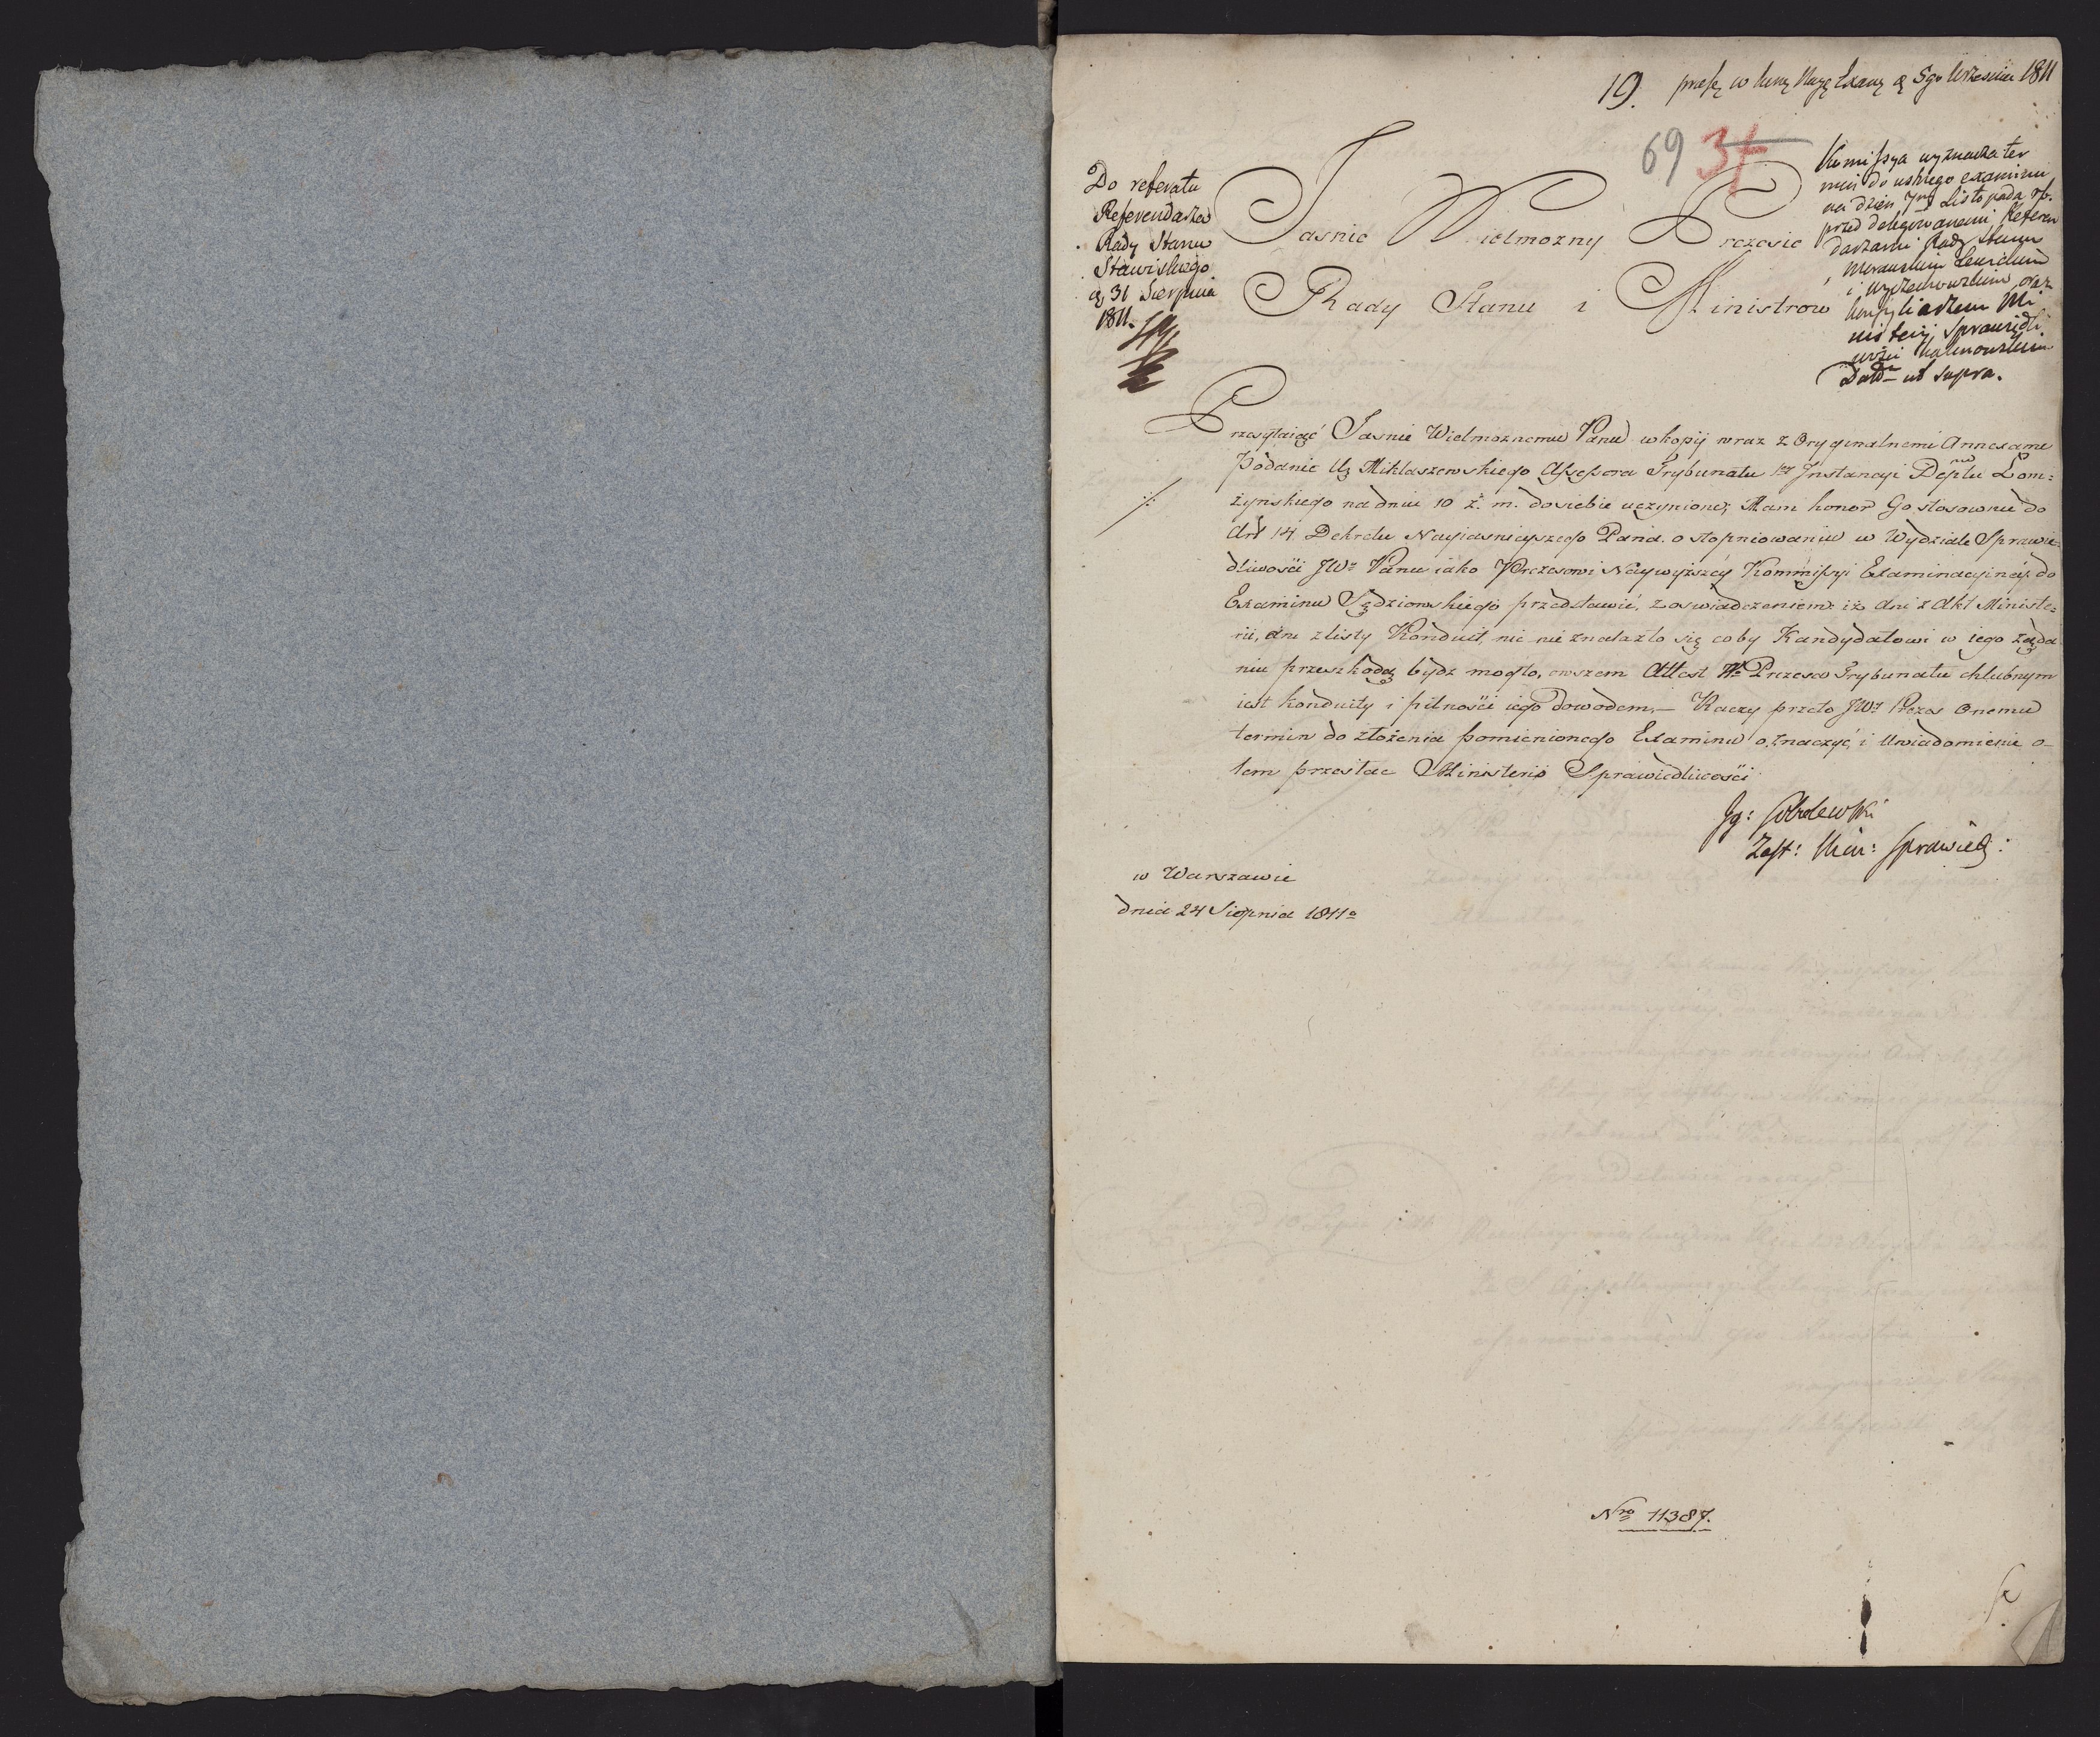 19. 5go Września 1811
69 31
Do referatu
Referendarza
Rady Stanu
Stawiskiego.
d. 31 Sierpnia
1811.
Kommissya wyznacza ter
min do ustnego examinu
na dzien 7my Listopada rb.
przed delegowanemi Referen
darzami Rady Stanu
i Wyczechowskim oraz
Ministerij Sprawiedli
wości Kalinowskim
Datt ut supra.
Jasnie Wielmozny Prezesie
Rady Stanu i Ministrow
Przesyłaiąć Jasnie Wielmoznemu Panu w kopij wraz z Oryginalnemi Annexami
Podanie Ur. Miklaszewskiego Assessora Trybunału 1ey Jnstancyi Deptu Łom=
żynskiego na dniu 10 z. m. do siebie uczynione; Mam honor Go stosownie do
Art 14 Dekretu Nayiasnieyszego Pana o stopniowaniu w Wydziale Sprawie=
dliwości JWu Panu iako Prezesowi Naywyższey Kommissyi Examinacyiney do
Examinu Sędziowskiego przedstawić, z oswiadczeniem iż ani z Akt Ministe=
rii, ani z listy Konduit, nic nie znalazło się coby Kandydatowi w iego żąda
niu przeszkodą bydz mogło, owszem Attest W. Prezesa Trybunału chlubnym
iest konduity i pilności iego Dowodem. — Raczy przeto JWy Prezes Onemu
termin do złożenia pomienionego Examinu oznaczyć, i Uwiadomienie o
tem przesłac Ministerio Sprawiedliwości
Jg: Sobolewski
Zast: Min: Sprawied:
w Warszawie
dnia 24 Sierpnia 1811o
Nro 11387.